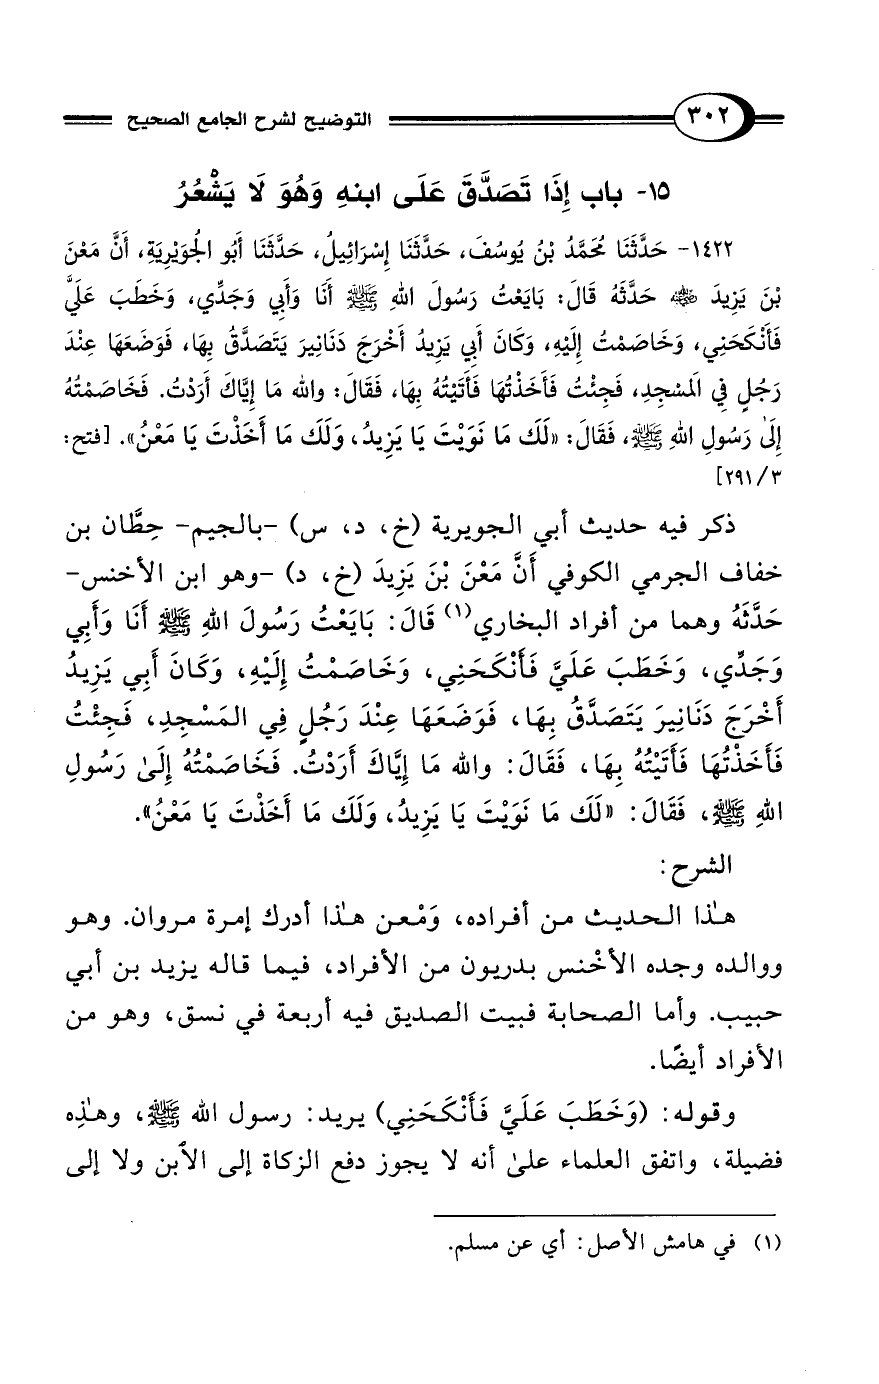 ٣٠٢ التوضيح لشرح الجامع الصحيح
١٥- باب إِذَا تَصَدَّقَ عَلَى ابنهِ وَهُوَ لَا يَشْعُرُ
١٤٢٢- حَدَّثَنَا مُحَمَّدُ بْنُ يُوسُفَ، حَدَّثَنَا إِسْرَائِيلُ، حَدَّثَنَا أَبُو الجُوَيْرِيَةِ، أَنَّ مَعْنَ
بْنَ يَزِيدَ ﵁ حَدَّثَهُ قَالَ: بَايَعْتُ رَسُولَ اللهِ ﷺ أَنَا وَأَبِي وَجَدِّي، وَخَطَبَ عَلَيَّ
فَأَنْكَحَنِي، وَخَاصَمْتُ إِلَيْهِ، وَكَانَ أَبِي يَزِيدُ أَخْرَجَ دَنَانِيرَ يَتَصَدَّقُ بِهَا، فَوَضَعَهَا عِنْدَ
رَجُلٍ فِي المَسْجِدِ، فَجِئْتُ فَأَخَذْتُهَا فَأَتَيْتُهُ بِهَا، فَقَالَ: والله مَا إِيَّاكَ أَرَدْتُ. فَخَاصَمْتُهُ
إِلَىٰ رَسُولِ اللهِ ﷺ، فَقَالَ: «لَكَ مَا نَوَيْتَ يَا يَزِيدُ، وَلَكَ مَا أَخَذْتَ يَا مَعْنُ». [فتح:
٢٩١/٣]
ذكر فيه حديث أبي الجويرية (خ، د، س) -بالجيم- حِطَّان بن
خفاف الجرمي الكوفي أَنَّ مَعْنَ بْنَ يَزِيدَ (خ، د) -وهو ابن الأخنس-
حَدَّثَهُ وهما من أفراد البخاري(١) قَالَ: بَايَعْتُ رَسُولَ اللهِ ﷺ أَنَا وَأَبِي
وَجَدِّي، وَخَطَبَ عَلَيَّ فَأَنْكَحَنِي، وَخَاصَمْتُ إِلَيْهِ، وَكَانَ أَبِي يَزِيدُ
أَخْرَجَ دَنَانِيرَ يَتَصَدَّقُ بِهَا، فَوَضَعَهَا عِنْدَ رَجُلٍ فِي المَسْجِدِ، فَجِئْتُ
فَأَخَذْتُهَا فَأَتَيْتُهُ بِهَا، فَقَالَ: والله مَا إِيَّاكَ أَرَدْتُ. فَخَاصَمْتُهُ إِلَىٰ رَسُولِ
اللهِ ﷺ، فَقَالَ: «لَكَ مَا نَوَيْتَ يَا يَزِيدُ، وَلَكَ مَا أَخَذْتَ يَا مَعْنُ».
الشرح:
هـٰذا الحديث من أفراده، وَمْعن هـٰذا أدرك إمرة مروان. وهو
ووالده وجده الأخْنس بدريون من الأفراد، فيما قاله يزيد بن أبي
حبيب. وأما الصحابة فبيت الصديق فيه أربعة في نسق، وهو من
الأفراد أيضًا.
وقوله: (وَخَطَبَ عَلَيَّ فَأَنْكَحَنِي) يريد: رسول الله ﷺ، وهـٰذِه
فضيلة، واتفق العلماء علىٰ أنه لا يجوز دفع الزكاة إلى الأبن ولا إلى
(١) في هامش الأصل: أي عن مسلم.